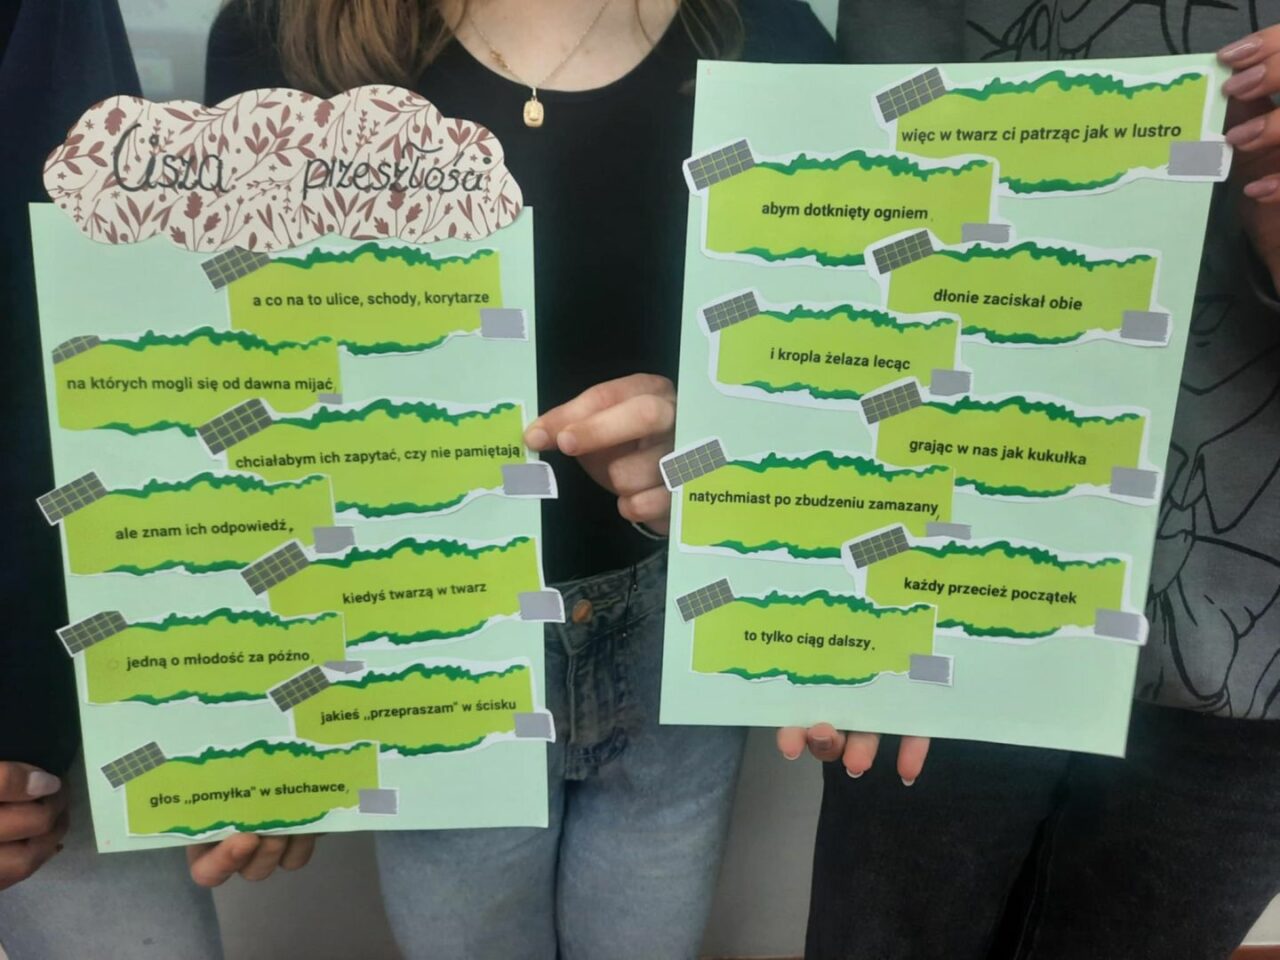 Cisza przeszłości
a co na to ulice, schody, korytarze
na których mogli się od dawna mijać,
chciałabym ich zapytać, czy nie pamiętają
ale znam ich odpowiedź.
kiedyś twarzą w twarz
jedną o młodość za późno,
jakieś ,,przepraszam" w ścisku
głos ,,pomyłka" w słuchawce,
więc w twarz ci patrząc jak w lustro
abym dotknięty ogniem
dłonie zaciskał obie
i kropla żelaza lecąc
grając w nas jak kukułka
natychmiast po zbudzeniu zamazany,
każdy przecież początek
to tylko ciąg dalszy.